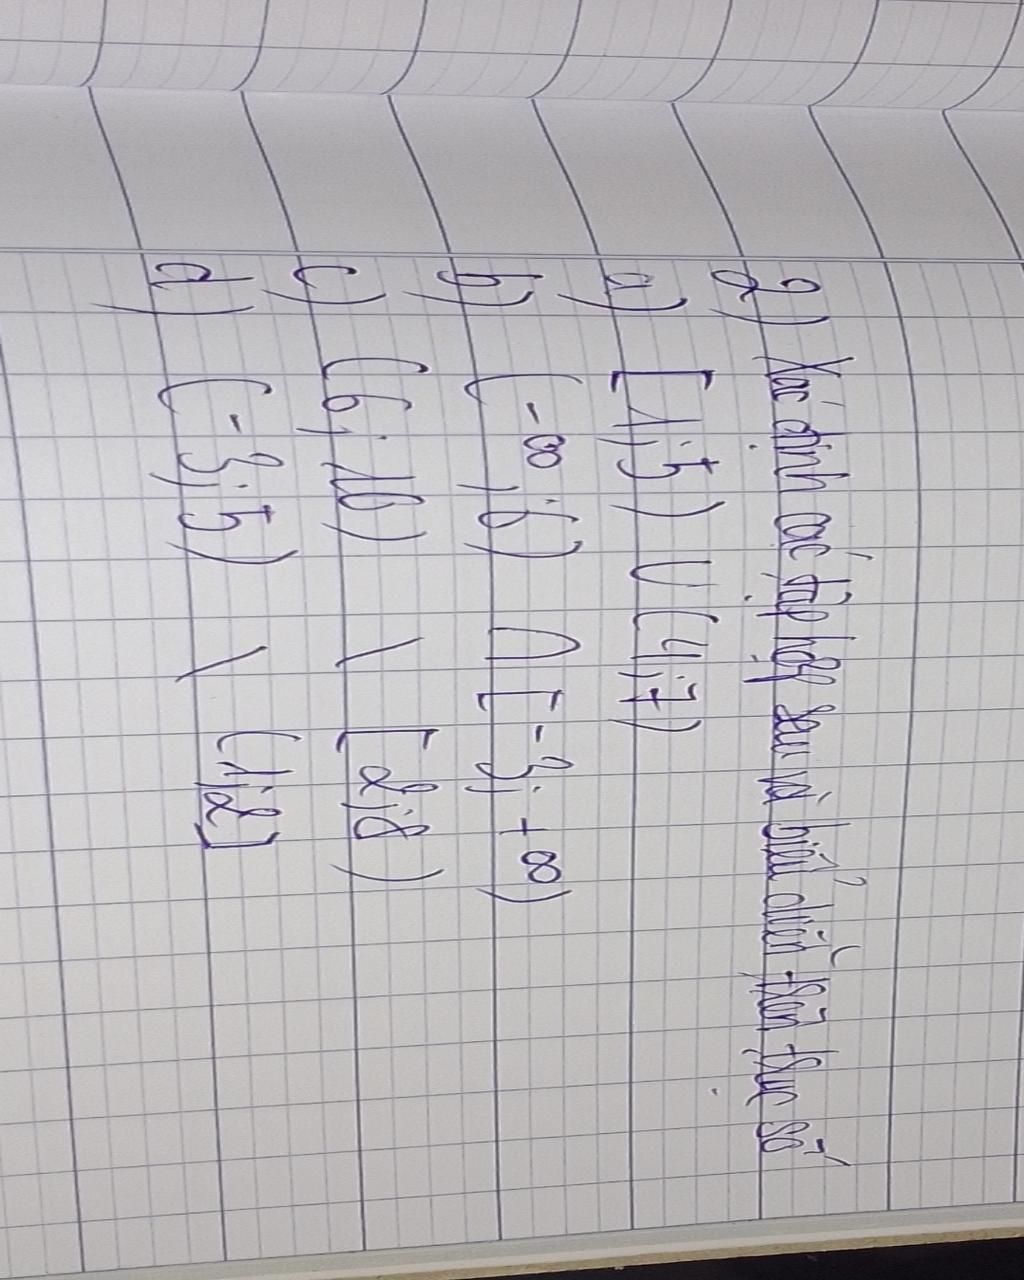 2) Xác định các tập hợp sau và biểu diễn trên trục số
a) [1;5) ∪ (4;7)
b) (-∞;6) ∩ [-3;+∞)
c) (6;10) \ [2;8)
d) (-3;5) \ (1;2]